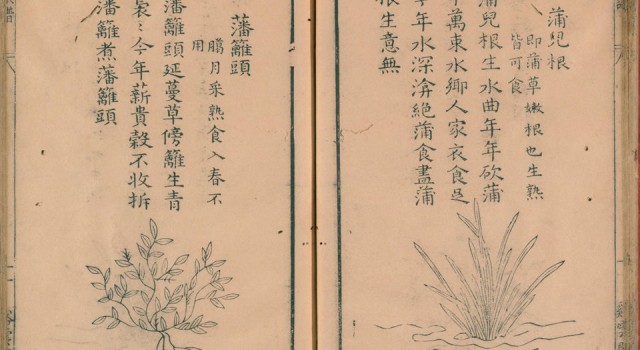 蒲兒根
即蒲草嫩根也生熟
皆可食
蒲兒根生水曲年年砍蒲
千萬束水鄉人家衣食足
年水深渰絕蒲食盡蒲
根生意無
藩籬頭
臘月采熟食入春不
用
藩籬頭延蔓草傍籬生青
裊〻今年薪貴穀不收拆
藩籬煮藩籬頭